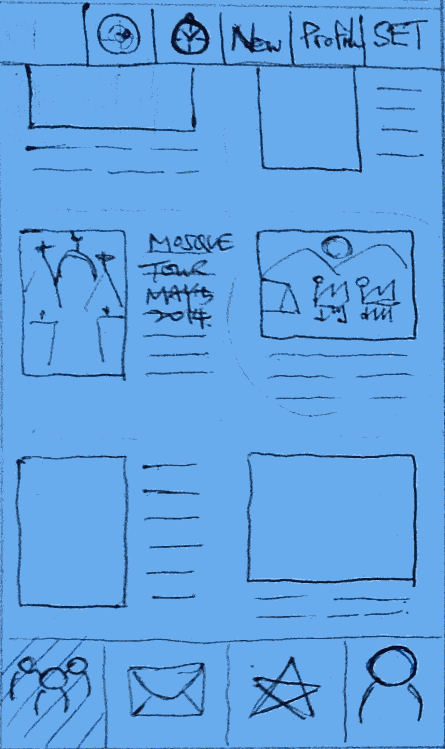 New Profile SET
MOSQUE
TOUR
MAYB
2014.